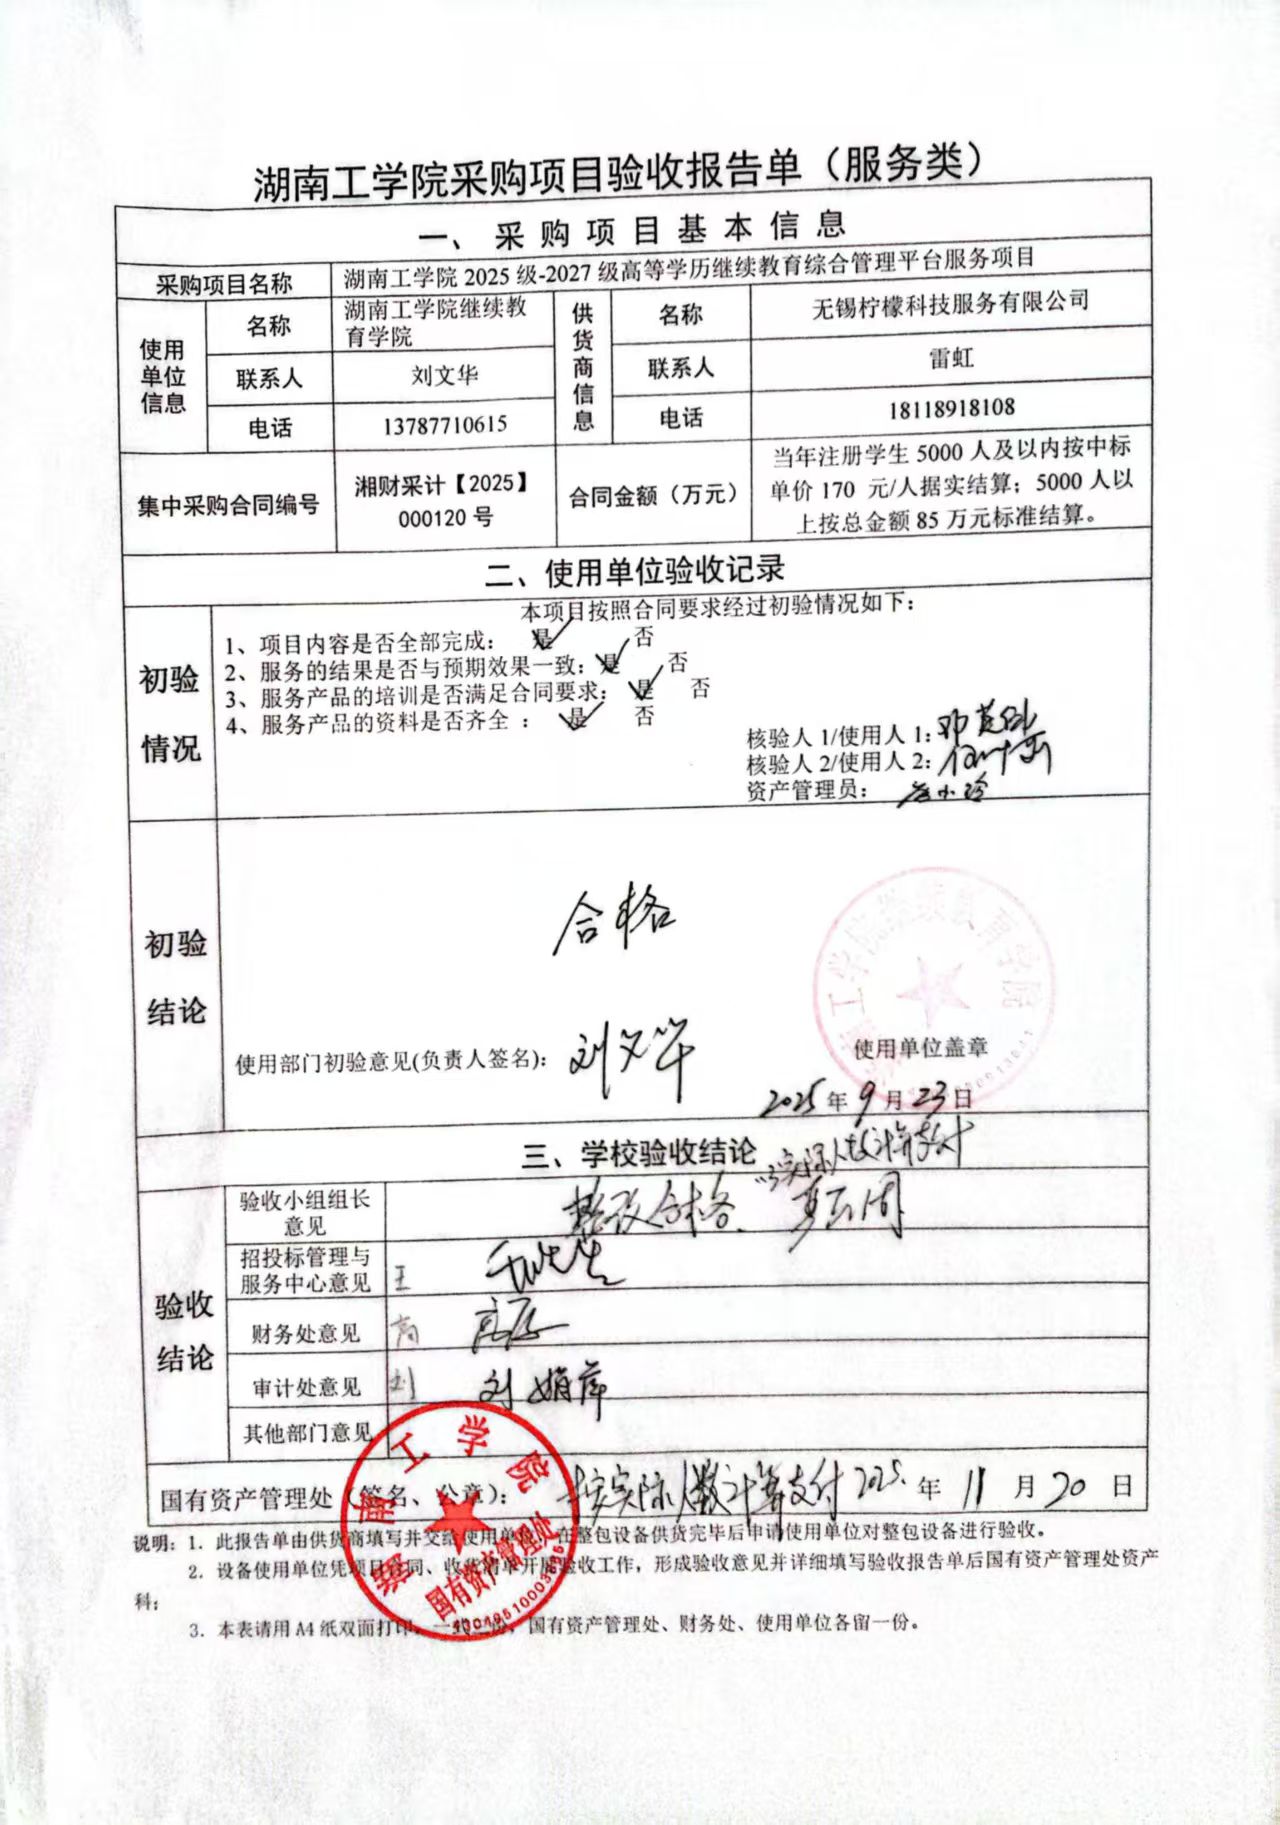 湖南工学院采购项目验收报告单（服务类）
一、采购项目基本信息
采购项目名称 湖南工学院 2025 级-2027 级高等学历继续教育综合管理平台服务项目
使用单位信息 名称 湖南工学院继续教育学院 供货商信息 名称 无锡柠檬科技服务有限公司
联系人 刘文华 联系人 雷虹
电话 13787710615 电话 18118918108
集中采购合同编号 湘财采计【2025】000120 号 合同金额（万元） 当年注册学生 5000 人及以内按中标
单价 170 元/人据实结算；5000 人以
上按总金额 85 万元标准结算。
二、使用单位验收记录
初验情况
本项目按照合同要求经过初验情况如下：
1、项目内容是否全部完成： 是 否
2、服务的结果是否与预期效果一致： 是 否
3、服务产品的培训是否满足合同要求： 是 否
4、服务产品的资料是否齐全 ： 是 否
核验人 1/使用人 1：
核验人 2/使用人 2：
资产管理员：
初验结论
合格
使用部门初验意见(负责人签名)： 刘文华
使用单位盖章
2025 年 9 月 23 日
三、学校验收结论
实际人数计算支付
验收结论
验收小组组长意见 合格
招投标管理与服务中心意见 王
财务处意见 高
审计处意见 刘 刘娟萍
其他部门意见
国有资产管理处（签名、公章）： 按实际人数计算支付 2025 年 11 月 20 日
湖南工学院
国有资产管理处
说明：1．此报告单由供货商填写并交给使用单位，在整包设备供货完毕后申请使用单位对整包设备进行验收。
2．设备使用单位凭项目合同、收货清单开展验收工作，形成验收意见并详细填写验收报告单后国有资产管理处资产
科；
3．本表请用 A4 纸双面打印，一式三份，国有资产管理处、财务处、使用单位各留一份。